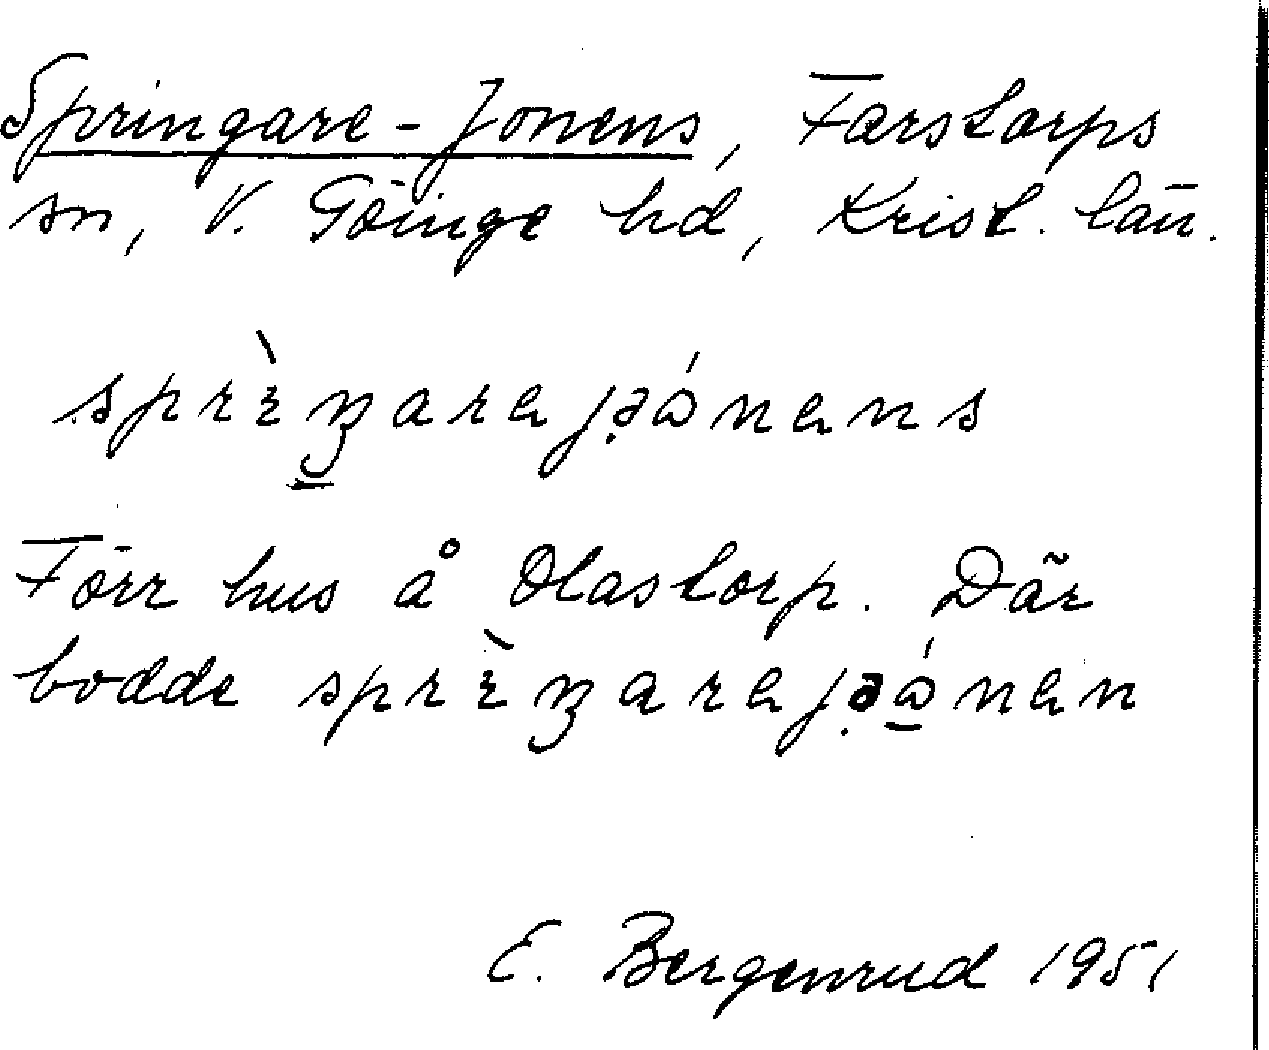 Springare-Jonens, Farstorps
sn, V. Göinge hd, Krist. län.
Förr hus å Olastorp. Där
bodde
E. Bergenrud 1951